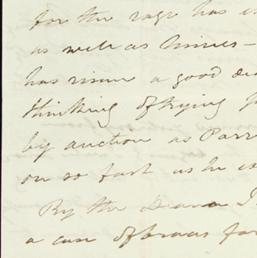 for the rage has
as well as Mines —
has risen a good
thinking of trying
by auction as Parr
on so fast as he
By the Diana I
a case of